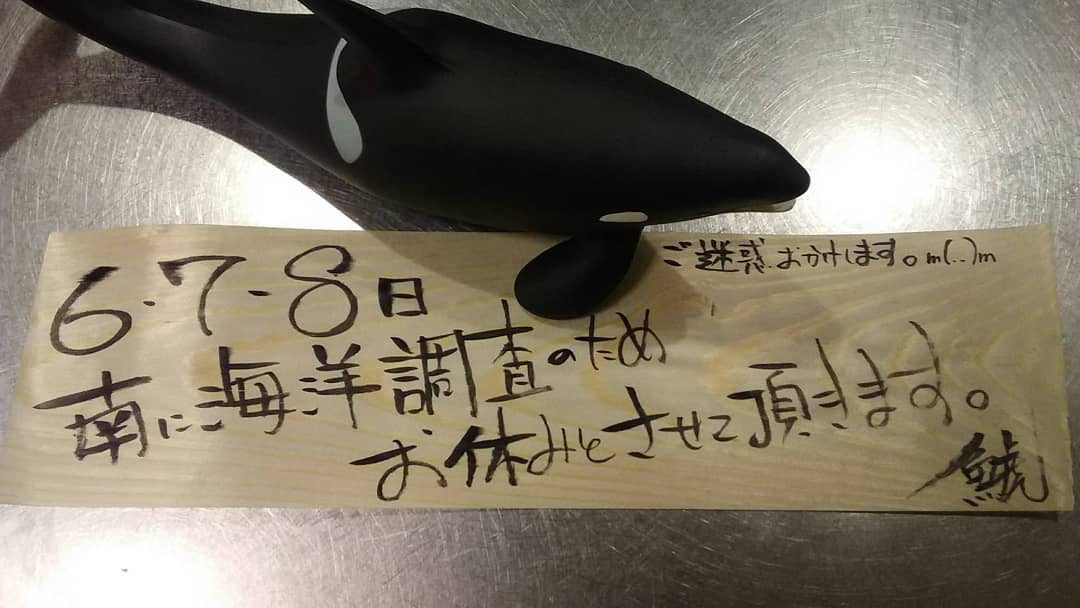 ご迷惑おかけします。m(..)m
6・7・8日
南に海洋調査のため
お休みとさせて頂きます。
鯱